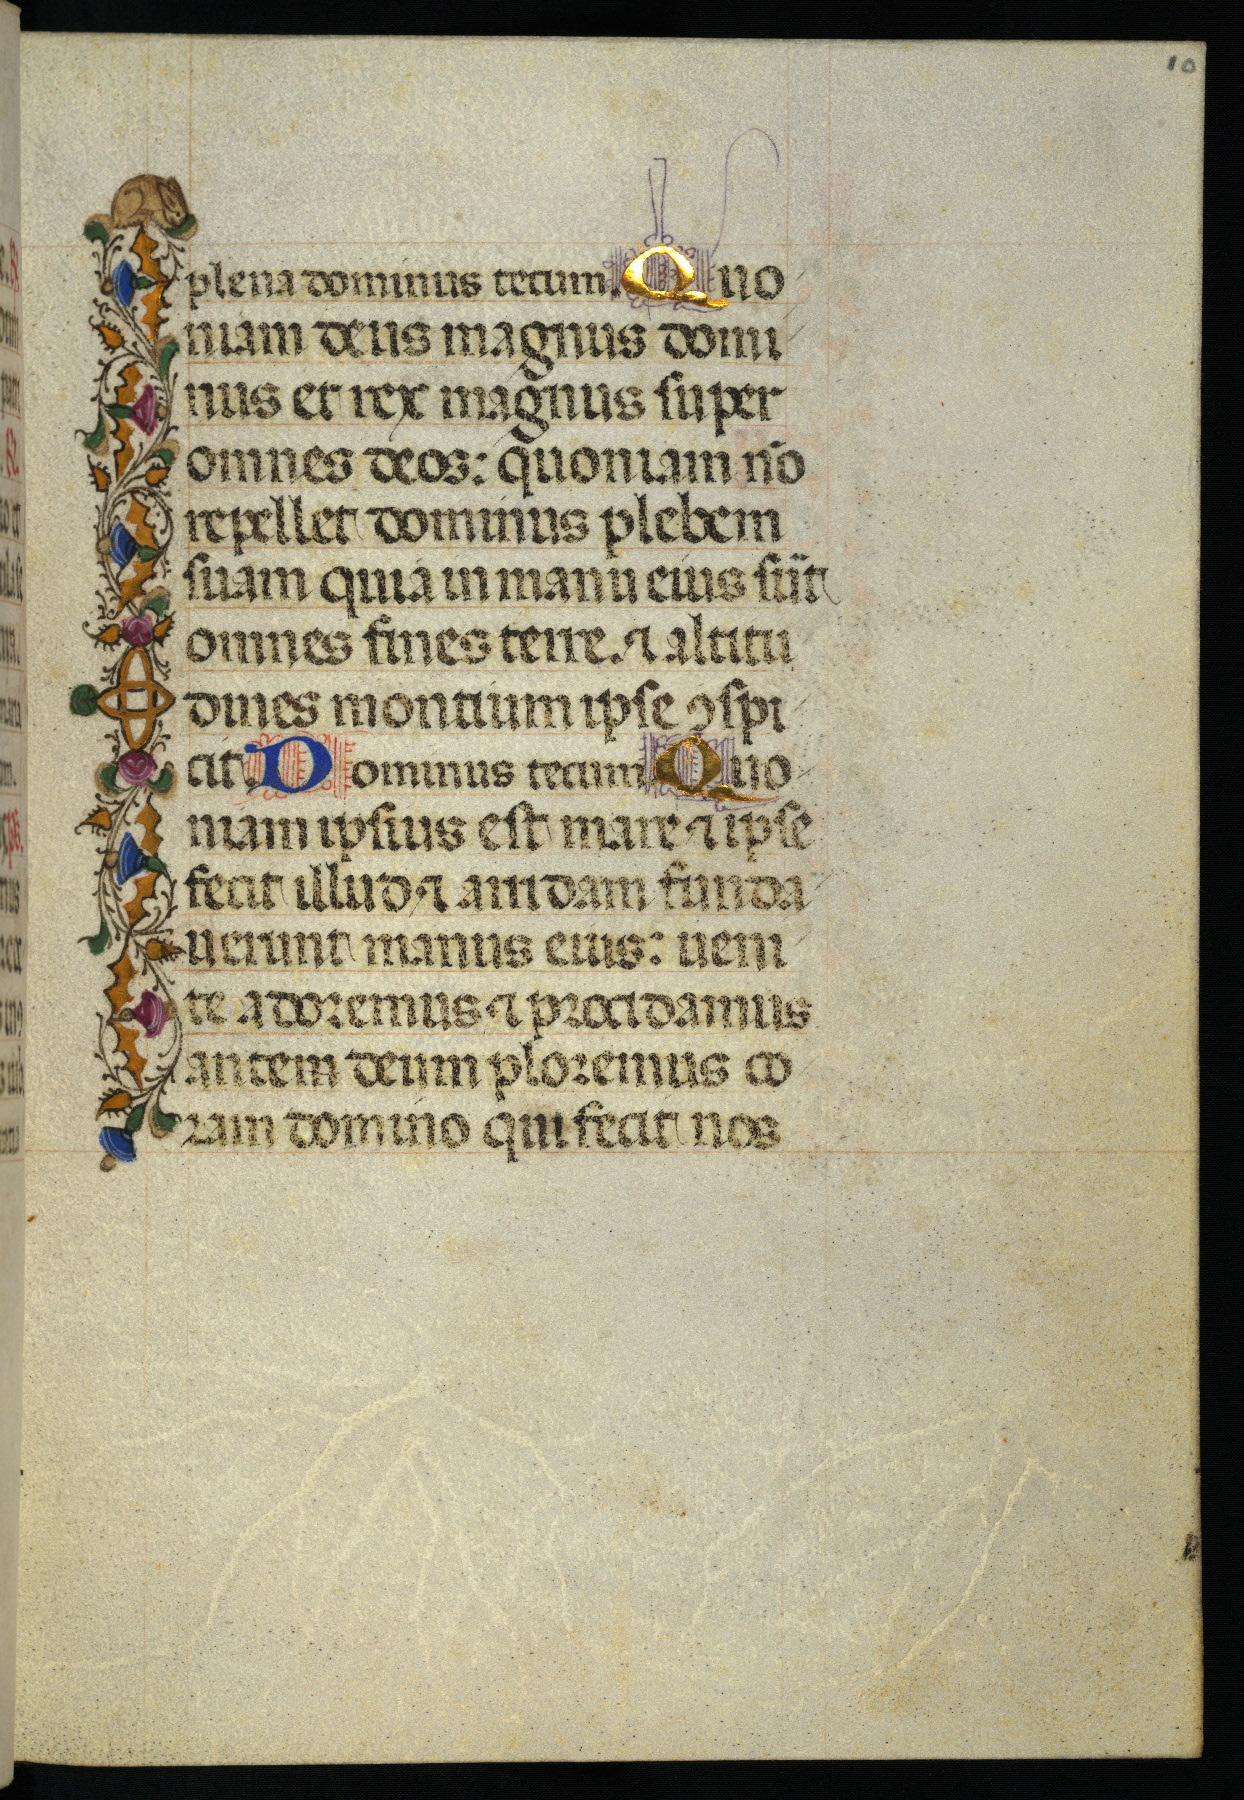 10
plena dominus tecum. Quo
niam deus magnus domi
nus et rex magnus super
omnes deos: quoniam nō
repellet dominus plebem
suam quia in manu eius sūt
omnes fines terre. ⁊ altitu
dines montium ipse ꝯspi
cit. Dominus tecum. Quo
niam ipsius est mare ⁊ ipse
fecit illud ⁊ aridam funda
uerunt manus eius: ueni
te adoremus ⁊ procidamus
antem deum ploremus co
ram domino qui fecit nos